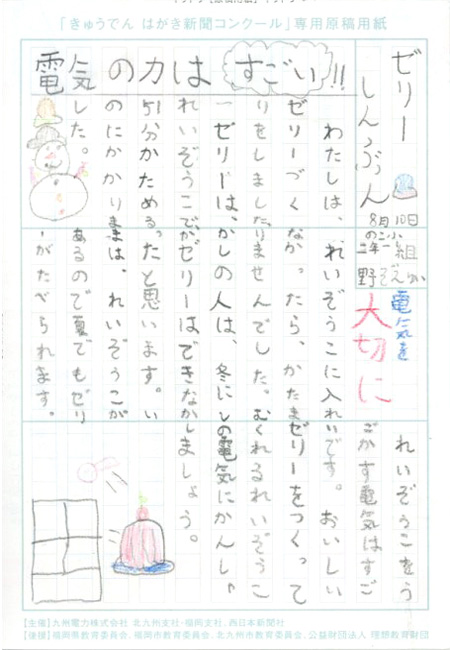 「きゅうでん はがき新聞コンクール」専用原稿用紙
ゼリー
しんぶん
8月10日
二年一組
電気の力は すごい!!
わたしは、
ゼリーづく
りをしました。
ゼリーは、
れいぞうこで、
51分かためる
のにかかりま
した。
れいぞうこに入れ
なかったら、かたま
りませんでした。む
かしの人は、冬にし
かゼリーはできなか
ったと思います。い
まは、れいぞうこが
あるので夏でもゼリ
ーがたべられます。
電気を
大切に
れいぞうこをう
ごかす電気はすご
いです。おいしい
ゼリーをつくって
くれるれいぞうこ
の電気にかんしゃ
しましょう。
【主催】九州電力株式会社 北九州支社・福岡支社、西日本新聞社
【後援】福岡県教育委員会、福岡市教育委員会、北九州市教育委員会、公益財団法人 理想教育財団